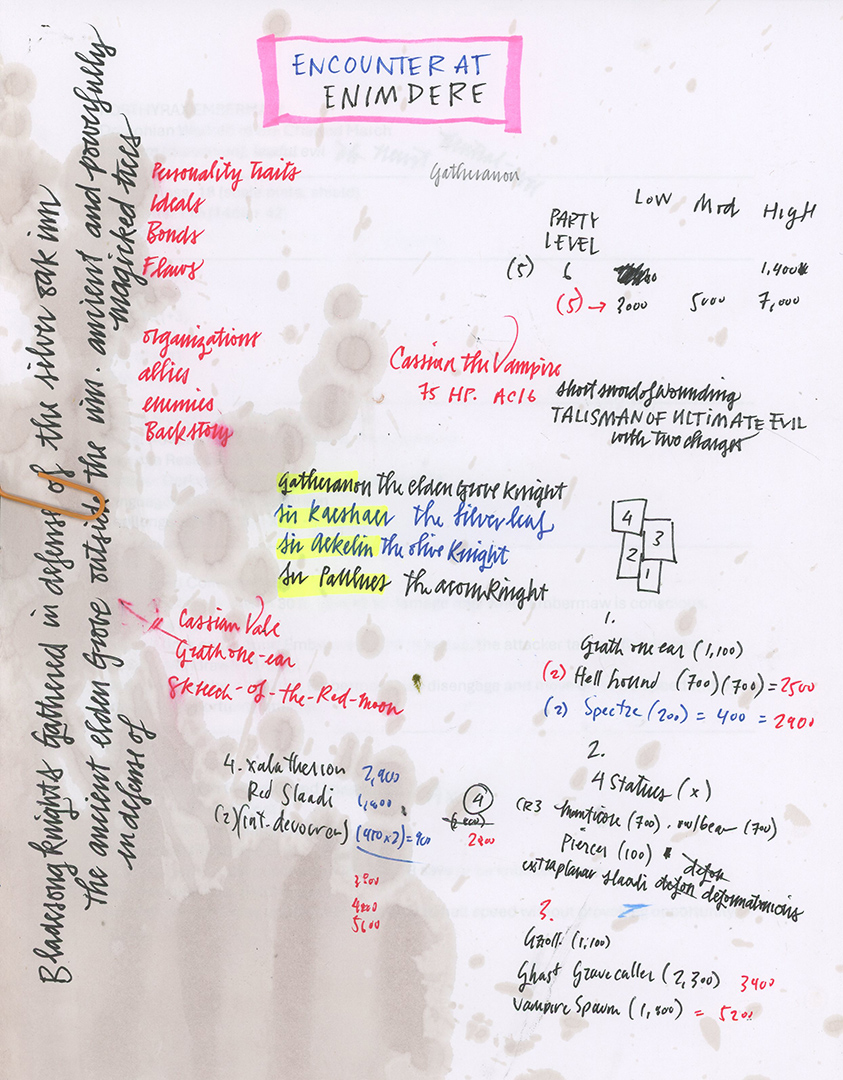 ENCOUNTER AT
ENIMDERE
Bladesong Knights Gathered in defense of the silver oak inn
the ancient elden Grove outside the inn. ancient and powerfully
in defense of
magicked trees
Personality Traits
Ideals
Bonds
Flaws
organizations
allies
enemies
Backstory
Gatheranon
LOW MOD HIGH
PARTY
LEVEL
(5) 6 1,400
(5) → 3000 5000 7,000
Cassian the Vampire
75 HP. AC16
short sword of wounding
TALISMAN OF ULTIMATE EVIL
with two charges
Gatheranon the elden Grove Knight
Sir Kaeshaer the Silverleaf
Sir Aekelin the olive Knight
Sir the acorn Knight
4
3
2
1
Cassian Vale
Grath one-ear
Skreech-of-the-Red-moon
1.
Grath one ear (1,100)
(2) Hell hound (700)(700) = 2500
(2) Spectre (200) = 400 = 2900
2.
4 Statues (x)
CR3 manticore (700) . owlbear (700)
Piercer (100)
extraplanar slaadi
3.
Gnoll (1,100)
Ghast Gravecaller (2,300) 3400
Vampire Spawn (1,800) = 5200
4. xalatherion 2,900
Red Slaadi 1,800
(2) (int. devourers) (450x2) = 900
4
2800
4800
5600